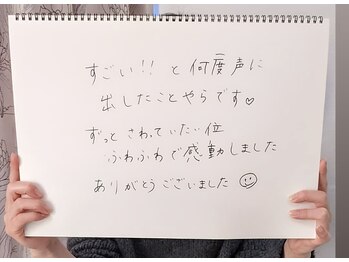 すごい!! と何度声に
出したことやらです♡
ずっと さわっていたい位
ふわふわで感動しました
ありがとうございました ☺